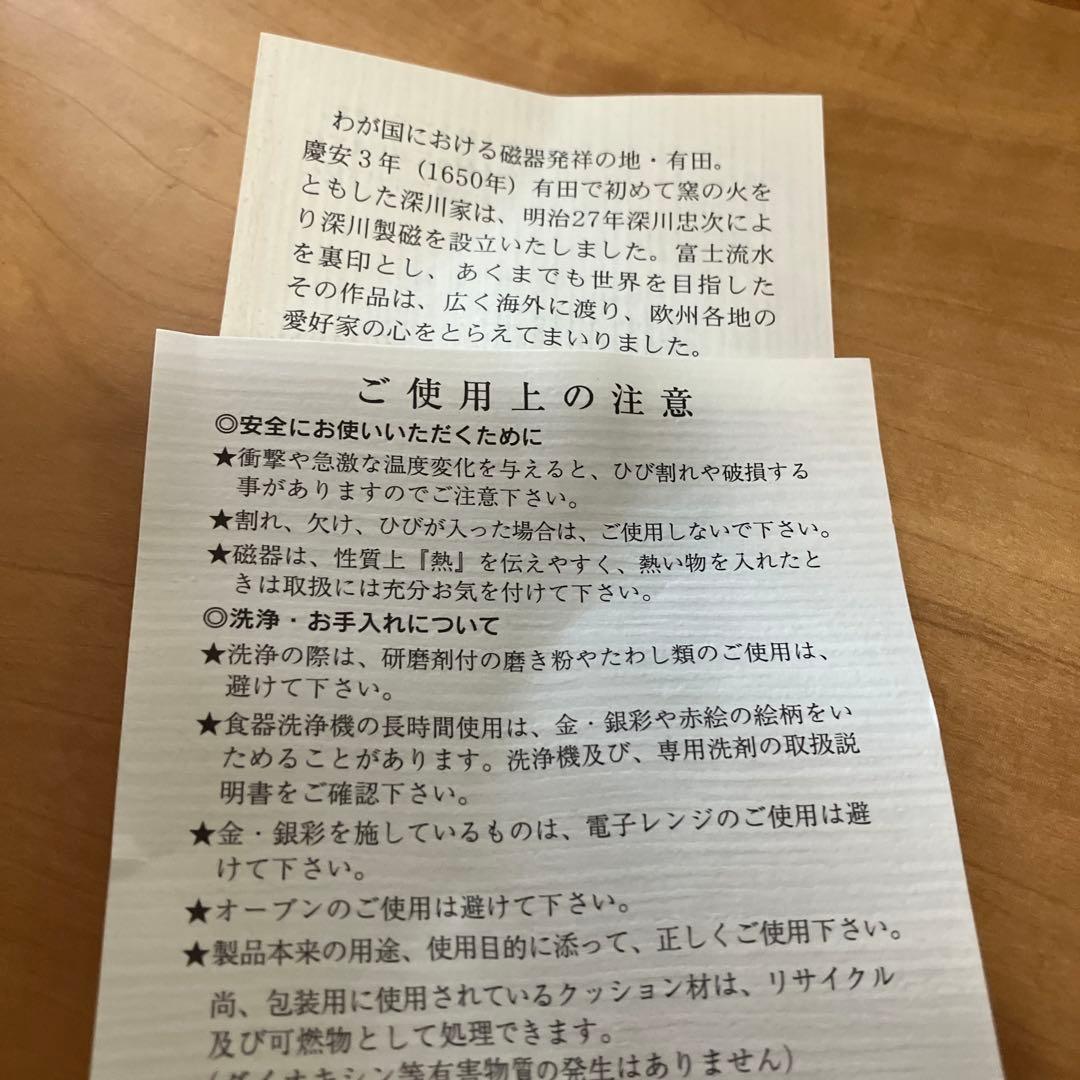 わが国における磁器発祥の地・有田。
慶安３年（1650年）有田で初めて窯の火を
ともした深川家は、明治27年深川忠次によ
り深川製磁を設立いたしました。富士流水
を裏印とし、あくまでも世界を目指した
その作品は、広く海外に渡り、欧州各地の
愛好家の心をとらえてまいりました。
ご使用上の注意
◎安全にお使いいただくために
★衝撃や急激な温度変化を与えると、ひび割れや破損する
事がありますのでご注意下さい。
★割れ、欠け、ひびが入った場合は、ご使用しないで下さい。
★磁器は、性質上『熱』を伝えやすく、熱い物を入れたと
きは取扱には充分お気を付けて下さい。
◎洗浄・お手入れについて
★洗浄の際は、研磨剤付の磨き粉やたわし類のご使用は、
避けて下さい。
★食器洗浄機の長時間使用は、金・銀彩や赤絵の絵柄をい
ためることがあります。洗浄機及び、専用洗剤の取扱説
明書をご確認下さい。
★金・銀彩を施しているものは、電子レンジのご使用は避
けて下さい。
★オーブンのご使用は避けて下さい。
★製品本来の用途、使用目的に添って、正しくご使用下さい。
尚、包装用に使用されているクッション材は、リサイクル
及び可燃物として処理できます。
（ダイオキシン等有害物質の発生はありません）